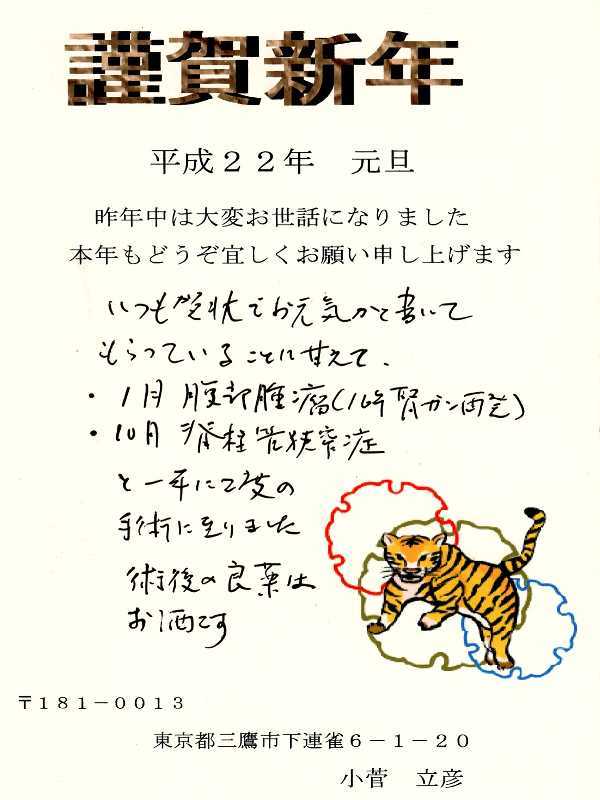 謹賀新年
平成22年 元旦
昨年中は大変お世話になりました
本年もどうぞ宜しくお願い申し上げます
いつも賀状でお元気かと書いて
もらっていることに甘えて、
・1月 腹部腫瘍(16年腎ガン再発)
・10月 脊柱管狭窄症
と一年に2度の
手術に至りました
術後の良薬は
お酒です
〒181-0013
東京都三鷹市下連雀6-1-20
小菅 立彦